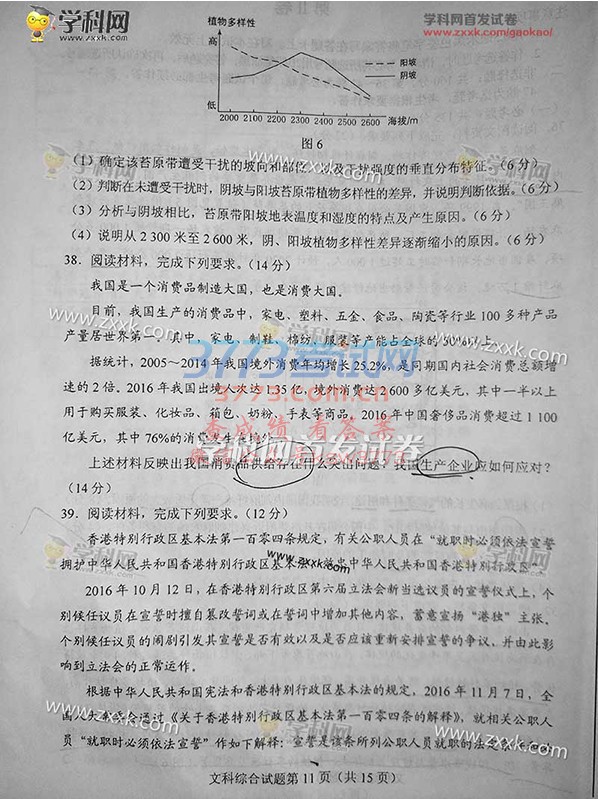 学科网
www.zxxk.com
学科网首发试卷
www.zxxk.com/gaokao/
植物多样性
高
低
阳坡
阴坡
2000 2100 2200 2300 2400 2500 2600 海拔/m
图6
(1) 确定该苔原带遭受干扰的坡向和部位，以及干扰强度的垂直分布特征。(6分)
(2) 判断在未遭受干扰时，阴坡与阳坡苔原带植物多样性的差异，并说明判断依据。(6分)
(3) 分析与阴坡相比，苔原带阳坡地表温度和湿度的特点及产生原因。(6分)
(4) 说明从2 300米至2 600米，阴、阳坡植物多样性差异逐渐缩小的原因。(6分)
38. 阅读材料，完成下列要求。(14分)
我国是一个消费品制造大国，也是消费大国。
目前，我国生产的消费品中，家电、塑料、五金、食品、陶瓷等行业100多种产品
产量居世界第一，其中，家电、制鞋、棉纺、服装等产能占全球的50%以上。
据统计，2005～2014年我国境外消费年均增长25.2%，是同期国内社会消费总额增
速的2倍。2016年我国出境人次达1.35亿，境外消费达2 600多亿美元，其中一半以上
用于购买服装、化妆品、箱包、奶粉、手表等商品。2016年中国奢侈品消费超过1 100
亿美元，其中76%的消费发生在境外。
上述材料反映出我国消费品供给存在什么突出问题？我国生产企业应如何应对？
(14分)
39. 阅读材料，完成下列要求。(12分)
香港特别行政区基本法第一百零四条规定，有关公职人员在“就职时必须依法宣誓
拥护中华人民共和国香港特别行政区 中华人民共和国香港特别行政区”
2016年10月12日，在香港特别行政区第六届立法会新当选议员的宣誓仪式上，个
别候任议员在宣誓时擅自篡改誓词或在誓词中增加其他内容，蓄意宣扬“港独”主张。
个别候任议员的闹剧引发其宣誓是否有效以及是否应该重新安排宣誓的争议，并由此影
响到立法会的正常运作。
根据中华人民共和国宪法和香港特别行政区基本法的规定，2016年11月7日，全
国人大常委会通过《关于香港特别行政区基本法第一百零四条的解释》，就相关公职人
员“就职时必须依法宣誓”作如下解释：宣誓是该条所列公职人员就职的法定
文科综合试题第11页（共15页）
3773考试网
3773.com.cn
查成绩 有答案
学科网首发试卷